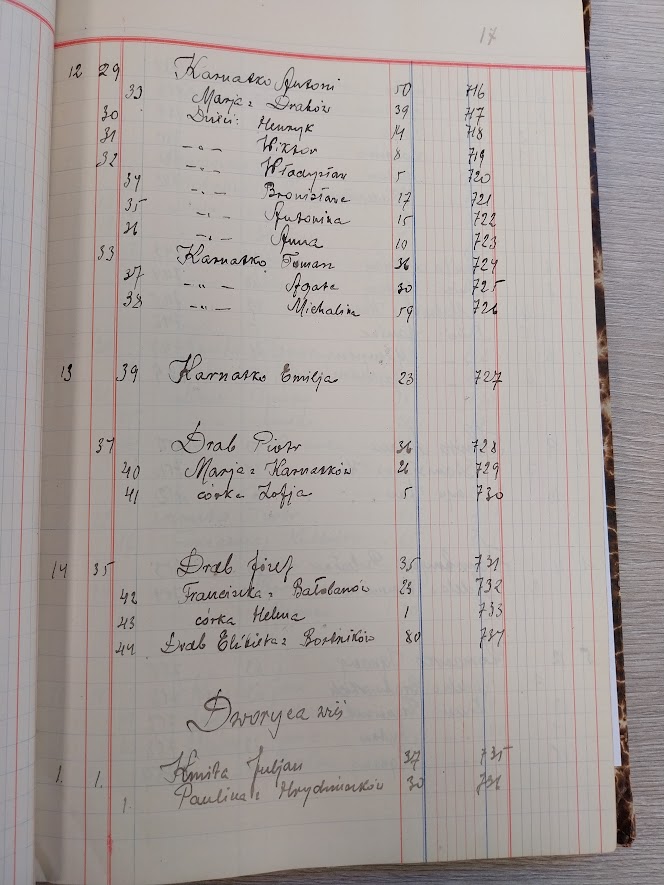 17
12 29 Karnatko Antoni 50 716
33 Marja z Drabów 39 717
30 Dzieci: Henryk 14 718
31 -"- Wiktor 8 719
32 -"- Władysław 5 720
34 -"- Bronisława 17 721
35 -"- Antonina 15 722
36 -"- Anna 10 723
33 Karnatko Toman 36 724
37 -"- Agata 30 725
38 -"- Michalina 59 726
13 39 Karnatko Emilja 23 727
Drab Piotr 36 728
40 Marja z Karnatków 26 729
41 córka Zofja 5 730
14 35 Drab Józef 35 731
42 Franciszka z Bałabanów 23 732
43 córka Helena 1 733
44 Drab Elżbieta z Bortników 80 734
Dworyca wieś
1. 1. Kmita Juljan 37 735
1. Paulina z 30 736